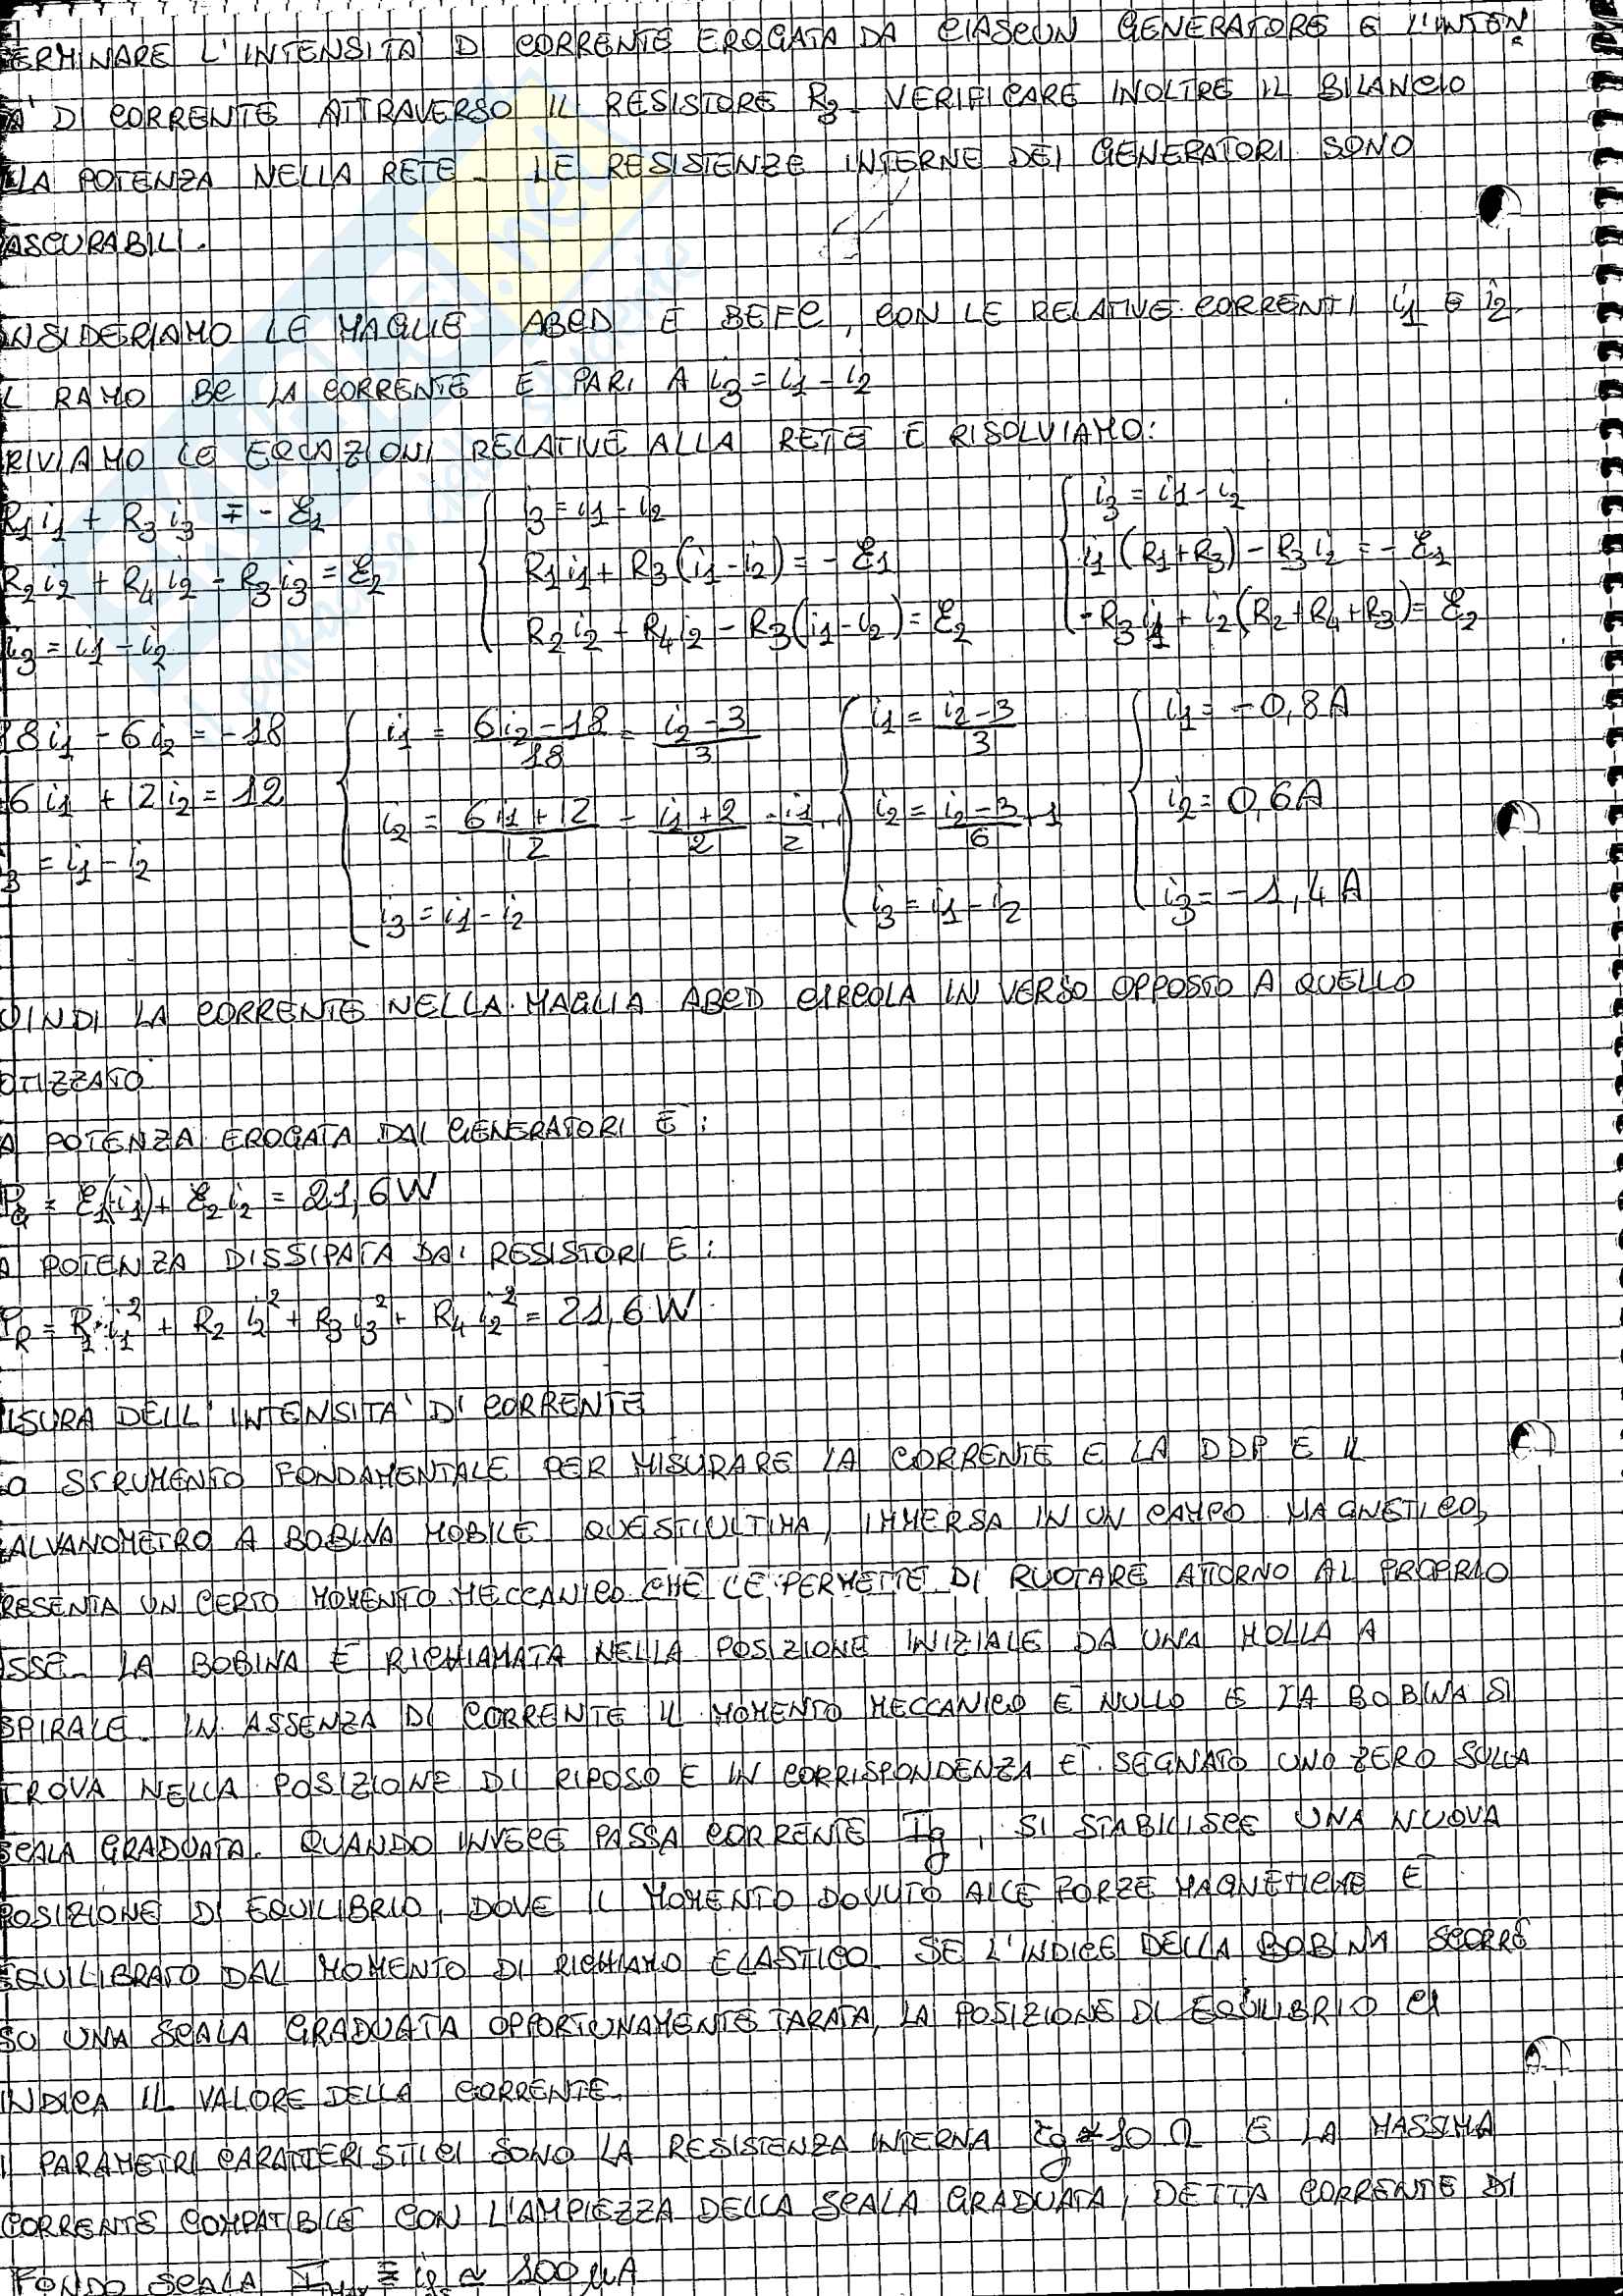 ERMINARE L'INTENSITA' DI CORRENTE EROGATA DA CIASCUN GENERATORE E L'INTEN
A' DI CORRENTE ATTRAVERSO IL RESISTORE R3. VERIFICARE INOLTRE IL BILANCIO
LLA POTENZA NELLA RETE. LE RESISTENZE INTERNE DEI GENERATORI SONO
ASCURABILI.
NSIDERIAMO LE MAGLIE ABCD E BEFC, CON LE RELATIVE CORRENTI i1 E i2.
L RAMO BC LA CORRENTE E' PARI A i3 = i1 - i2
RIVIAMO LE EQUAZIONI RELATIVE ALLA RETE E RISOLVIAMO:
R1 i1 + R3 i3 = - ℰ1 { i3 = i1 - i2 { i3 = i1 - i2
R2 i2 + R4 i2 - R3 i3 = ℰ2 R1 i1 + R3 (i1 - i2) = - ℰ1 i1 (R1 + R3) - R3 i2 = - ℰ1
i3 = i1 - i2 R2 i2 + R4 i2 - R3 (i1 - i2) = ℰ2 - R3 i1 + i2 (R2 + R4 + R3) = ℰ2
18 i1 - 6 i2 = -18 { i1 = 6 i2 - 18 / 18 = i2 - 3 / 3 { i1 = i2 - 3 / 3 { i1 = - 0,8 A
6 i1 + 12 i2 = 12 i2 = 6 i1 + 12 / 12 = i1 + 2 / 2 = i1 / 2 + 1 i2 = i2 - 3 / 6 + 1 i2 = 0,6 A
3 = i1 - i2 i3 = i1 - i2 i3 = i1 - i2 i3 = - 1,4 A
UINDI LA CORRENTE NELLA MAGLIA ABCD CIRCOLA IN VERSO OPPOSTO A QUELLO
OTIZZATO
A POTENZA EROGATA DAI GENERATORI E':
PG = ℰ1(-i1) + ℰ2 i2 = 21,6 W
A POTENZA DISSIPATA DAI RESISTORI E':
PR = R1 i1² + R2 i2² + R3 i3² + R4 i2² = 21,6 W
ISURA DELL'INTENSITA' DI CORRENTE
LO STRUMENTO FONDAMENTALE PER MISURARE LA CORRENTE E LA DDP E' IL
ALVANOMETRO A BOBINA MOBILE. QUEST'ULTIMA, IMMERSA IN UN CAMPO MAGNETICO,
RESENTA UN CERTO MOMENTO MECCANICO CHE LE PERMETTE DI RUOTARE ATTORNO AL PROPRIO
SSE. LA BOBINA E' RICHIAMATA NELLA POSIZIONE INIZIALE DA UNA MOLLA A
SPIRALE. IN ASSENZA DI CORRENTE IL MOMENTO MECCANICO E' NULLO E LA BOBINA SI
TROVA NELLA POSIZIONE DI RIPOSO E IN CORRISPONDENZA E' SEGNATO UNO ZERO SULLA
SCALA GRADUATA. QUANDO INVECE PASSA CORRENTE Ig, SI STABILISCE UNA NUOVA
POSIZIONE DI EQUILIBRIO, DOVE IL MOMENTO DOVUTO ALLE FORZE MAGNETICHE E'
EQUILIBRATO DAL MOMENTO DI RICHIAMO ELASTICO. SE L'INDICE DELLA BOBINA SCORRE
SU UNA SCALA GRADUATA OPPORTUNAMENTE TARATA, LA POSIZIONE DI EQUILIBRIO CI
INDICA IL VALORE DELLA CORRENTE.
I PARAMETRI CARATTERISTICI SONO LA RESISTENZA INTERNA rg ≈ 10 Ω E LA MASSIMA
CORRENTE COMPATIBILE CON L'AMPIEZZA DELLA SCALA GRADUATA, DETTA CORRENTE DI
FONDO SCALA IMAX ≡ ifs ≈ 100 µA